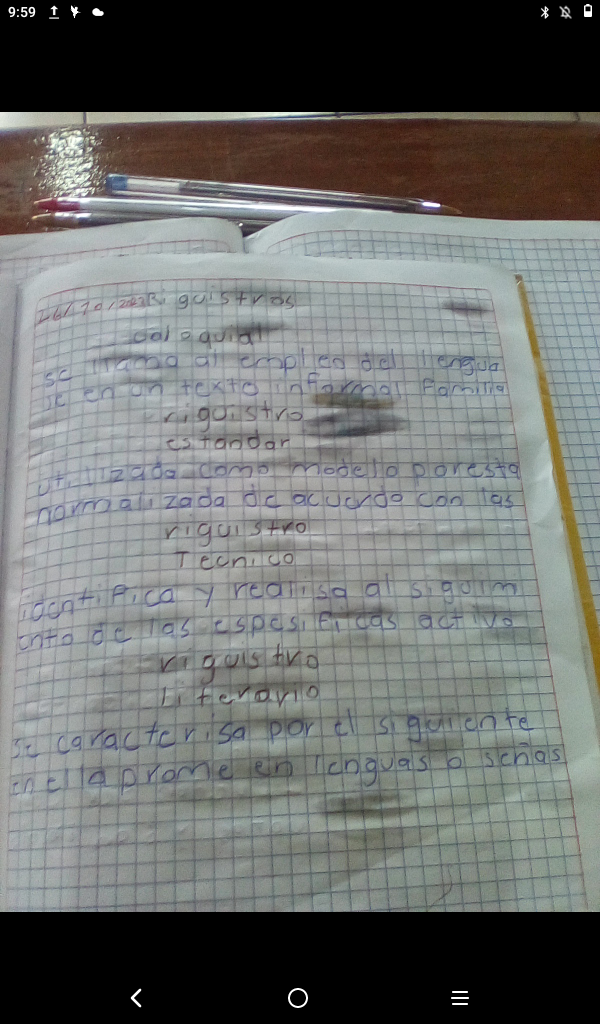 9:59
26/10/2023 Riguistros
coloquial
se llama al empleo del lengua
je en un texto informal familia
riguistro
estandar
utilizada como modelo poresta
normalizada de acuerdo con las
riguistro
Tecnico
identifica y realisa al siguim
ento de las espesificas activo
riguistro
literario
se caracterisa por el siguiente
en ella prome en lenguas o señas